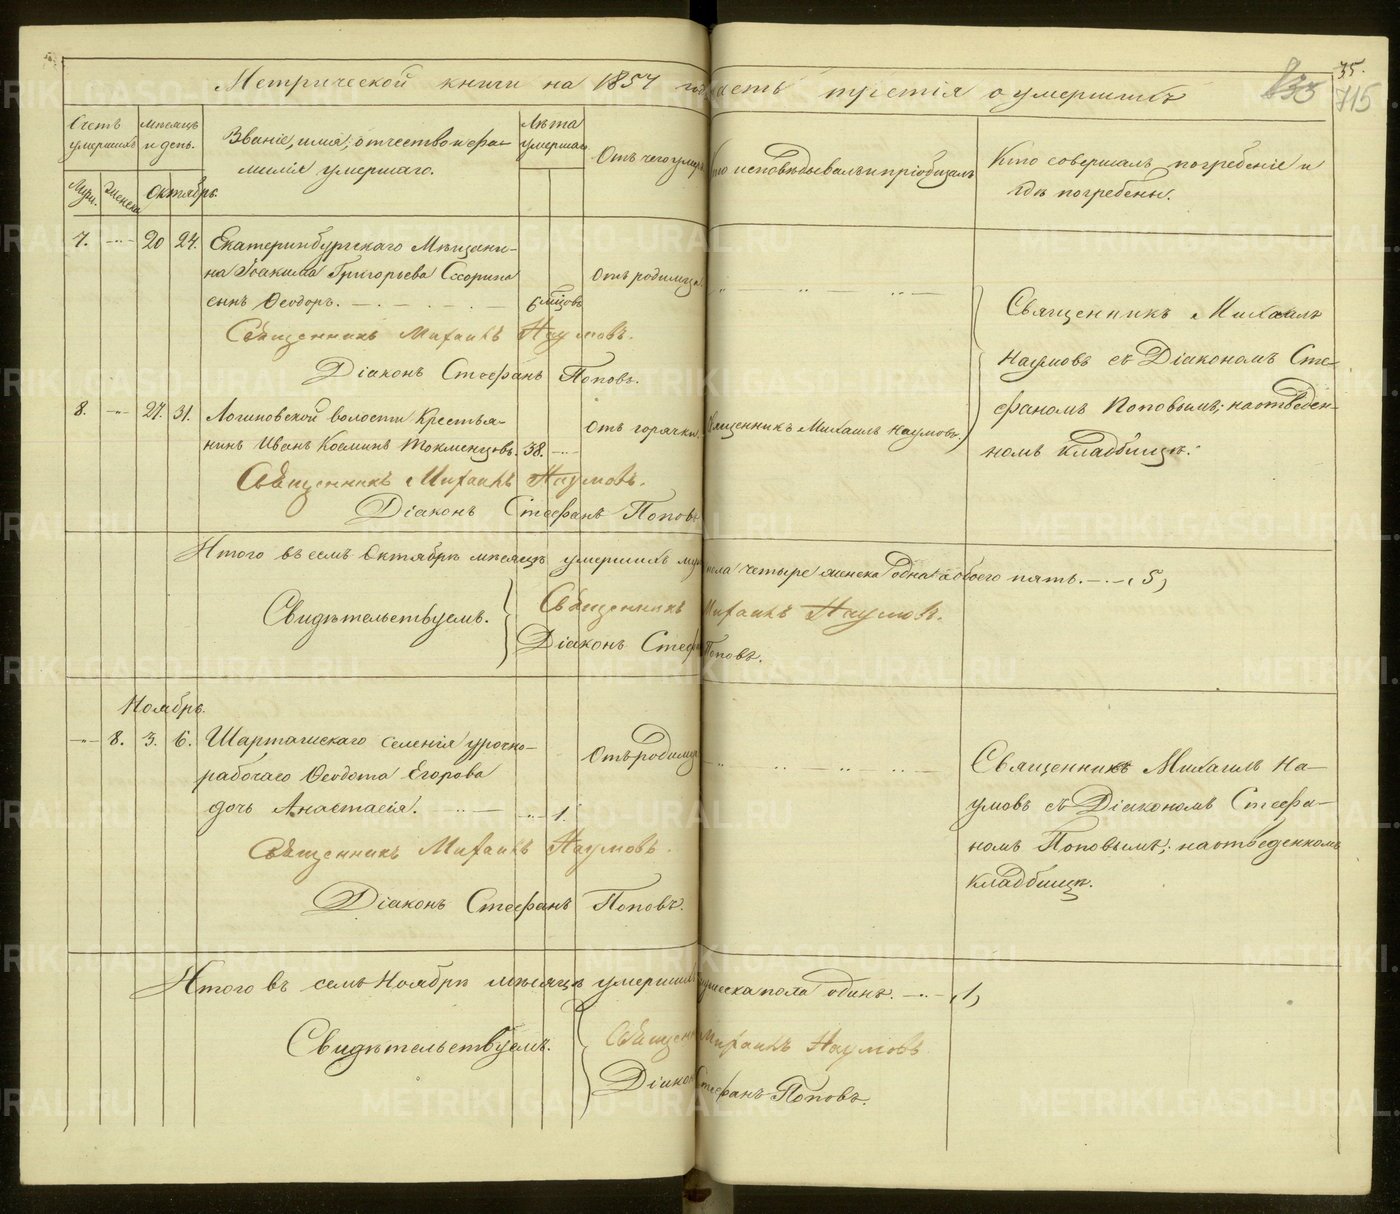 Метрической книги на 1857 годъ часть третія о умершихъ
35.
715
Счетъ умершихъ
Мѣсяцъ и день.
Званіе, имя, отчество и фа-
милія умершаго.
Лѣта умершаго
Отъ чего умеръ
Кто исповѣдывалъ и пріобщалъ
Кто совершалъ погребеніе и
гдѣ погребены.
Муж. Женска Октябрь.
7. 20 24. Екатеринбургскаго Мѣщани-
на Іоакима Григорьева
сынъ Ѳеодоръ. 6 мѣсцовъ
Отъ родимца.
Священникъ Михаилъ Наумовъ.
Діаконъ Стефанъ Поповъ.
Священникъ Михаилъ
Наумовъ съ Діакономъ Сте-
фаномъ Поповымъ; на отведен-
номъ кладбищѣ.
8. 27. 31. Логиновской волости Крестья-
нинъ Иванъ Козминъ Токменцовъ. 38.
Отъ горячки. Священникъ Михаилъ Наумовъ.
Священникъ Михаилъ Наумовъ.
Діаконъ Стефанъ Поповъ
Итого въ семъ Октябрѣ мѣсяцѣ умершихъ муж. пола четыре женска одна а обоего пять. (5)
Свидѣтельствуемъ.
Священникъ Михаилъ Наумовъ.
Діаконъ Стефанъ Поповъ.
Ноябрь.
8. 3. 6. Шарташскаго селенія урочно-
рабочаго Ѳеодота Егорова
дочь Анастасія. 1.
Отъ родимца
Священникъ Михаилъ Наумовъ.
Діаконъ Стефанъ Поповъ.
Священникъ Михаилъ На-
умовъ съ Діакономъ Стефа-
номъ Поповымъ; на отведенномъ
кладбищѣ.
Итого въ семъ Ноябрѣ мѣсяцѣ умершихъ женска пола одинъ. (1)
Свидѣтельствуемъ.
Священникъ Михаилъ Наумовъ
Діаконъ Стефанъ Поповъ.
METRIKI.GASO-URAL.RU